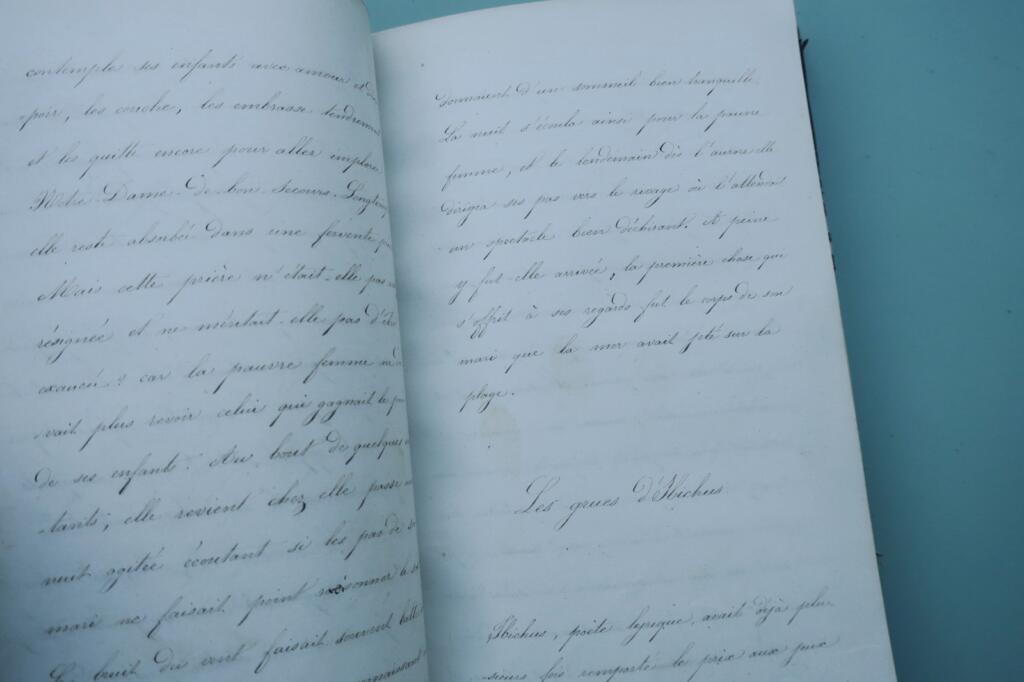 contemple ses enfants avec amour et
-poir, les couche, les embrasse tendreme
et les quitte encore pour aller implore
Notre-Dame-de-bon-Secours. Longtemp
elle reste absorbée dans une fervente
Mais cette prière n'était-elle pas
résignée et ne méritait-elle pas d'
exaucée? car la pauvre femme ne d
-vait plus revoir celui qui gagnait le
de ses enfants. Au bout de quelques
-tants, elle revient chez elle passe
nuit agitée écoutant si les pas de
mari ne faisait point résonner le
Le bruit du vent faisait souvent
Dormaient d'un sommeil bien tranquille.
La nuit s'écoula ainsi pour la pauvre
femme, et le lendemain dès l'aurore elle
dirigea ses pas vers le rivage où l'attenda
un spectacle bien déchirant. A peine
y fut-elle arrivée, la première chose qui
s'offrit à ses regards fut le corps de son
mari que la mer avait jeté sur la
plage.
Les grues d'Ibichus
Ibichus, poète lyrique, avait déjà plu-
sieurs fois remporté le prix aux jeux